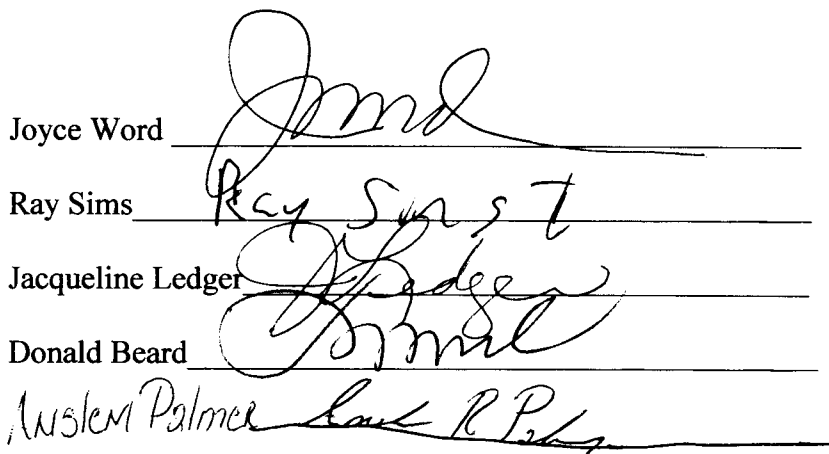 Joyce Word
Ray Sims Ray Sims
Jacqueline Ledger JLedger
Donald Beard
Anslem Palmer R Palmer